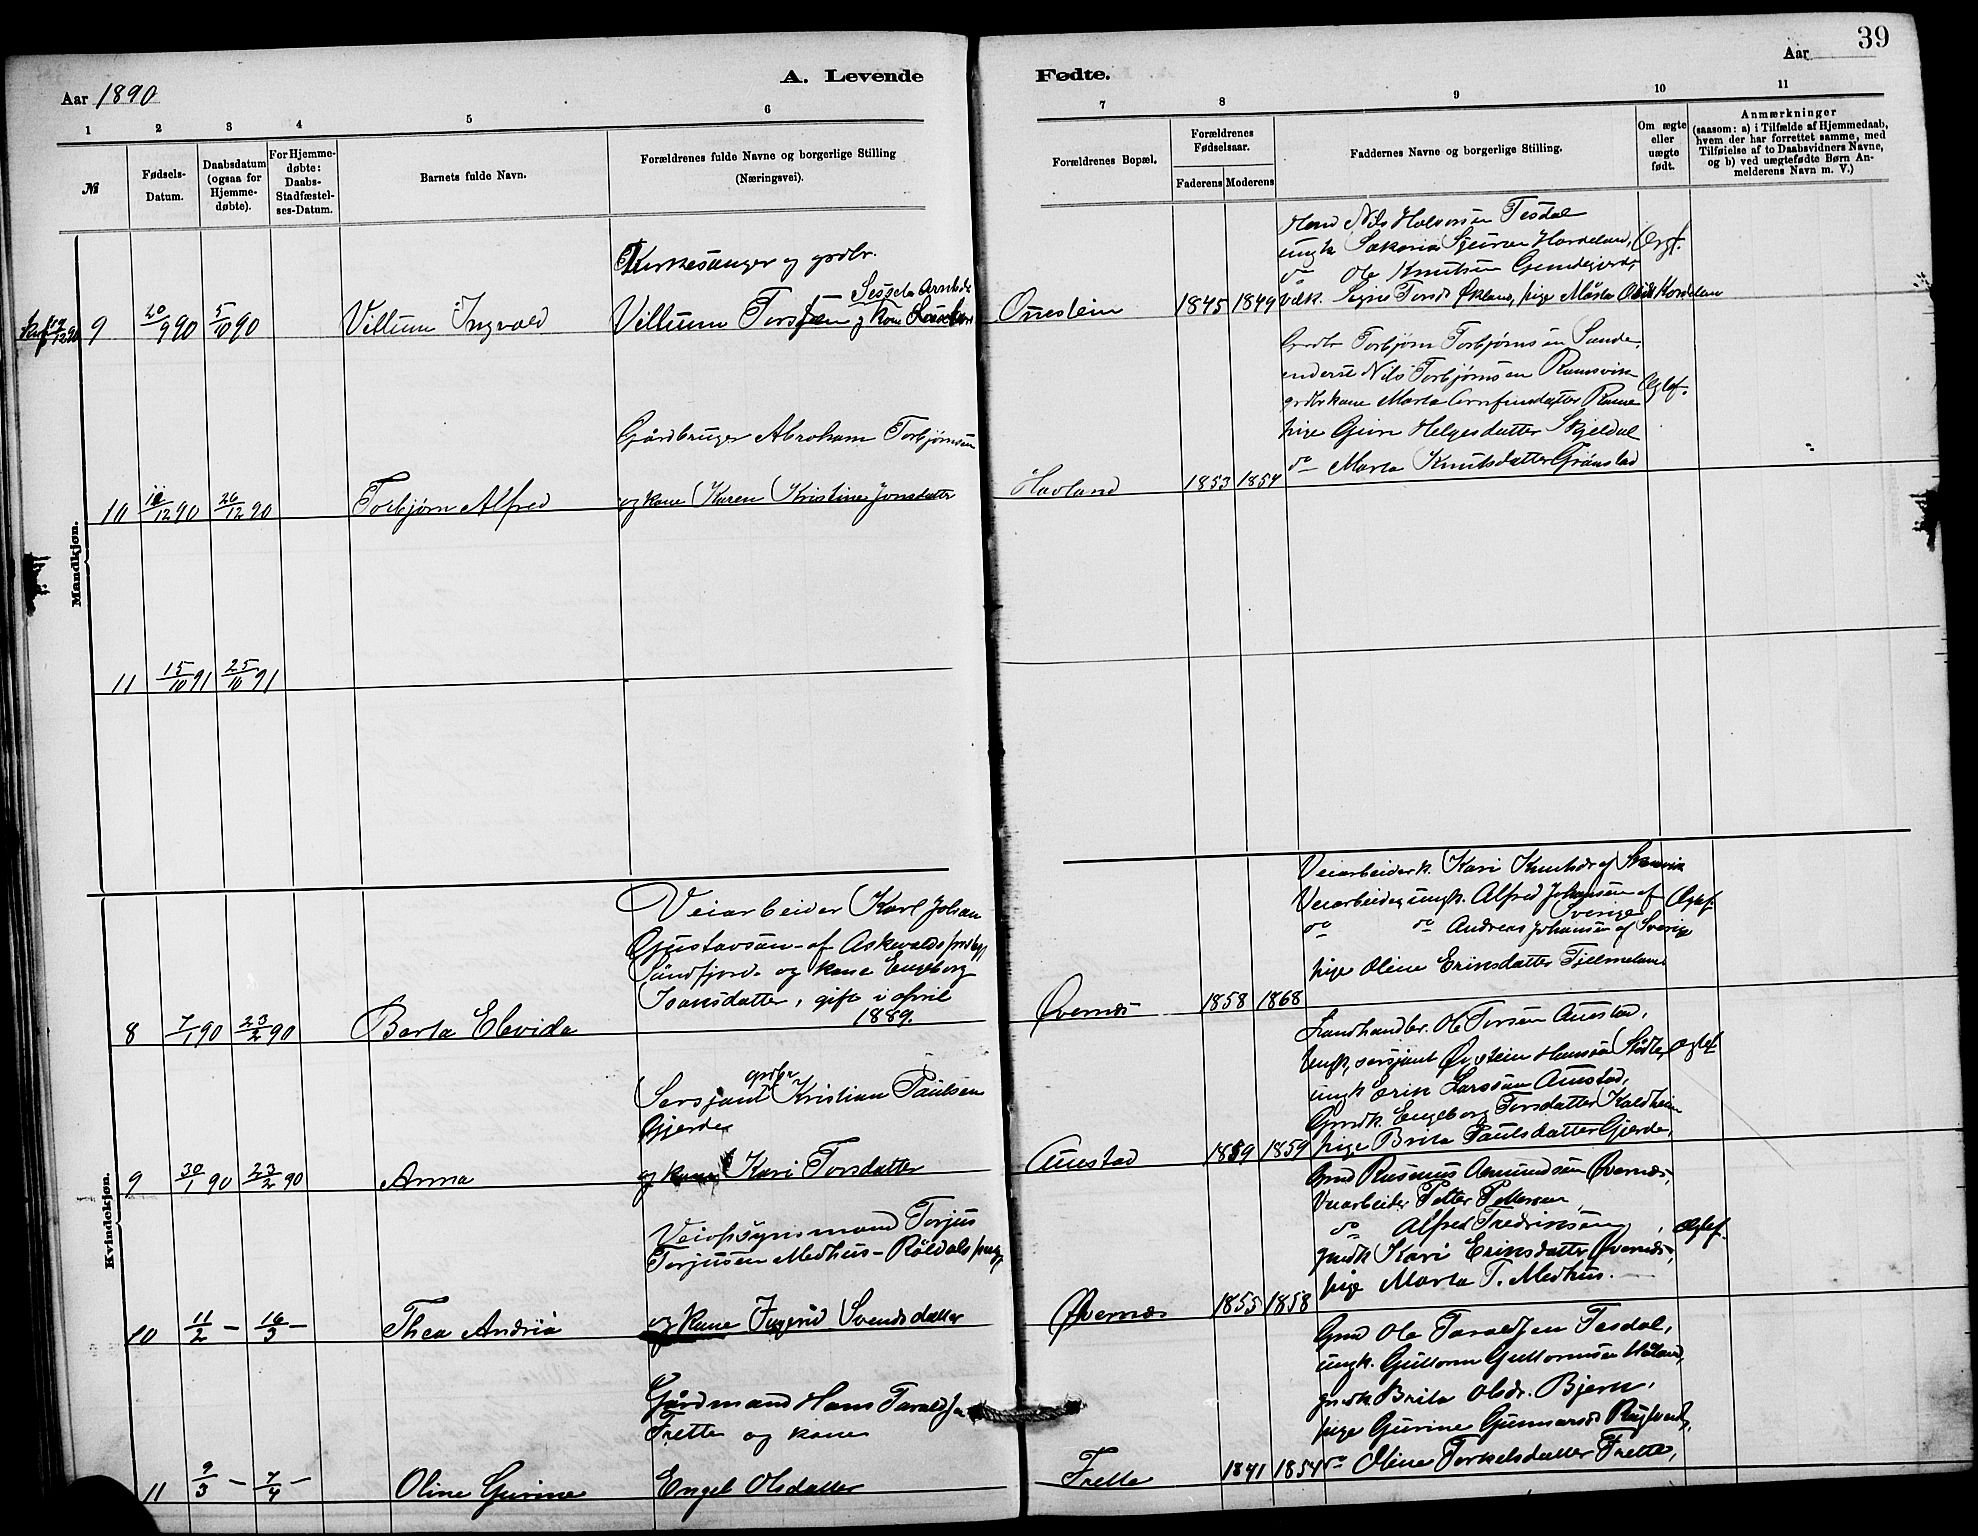 39
A. Levende
Fødte.
Aar
Aar 1890
1 2 3 4 5 6 7 8 9 10 11
№
Fødsels-
Datum.
Daabsdatum
(ogsaa for
Hjemme-
døbte).
For Hjemme-
døbte:
Daabs-
Stadfæstel-
ses-Datum.
Barnets fulde Navn.
Forældrenes fulde Navne og borgerlige Stilling
(Næringsvei).
Forældrenes Bopæl.
Forældrenes
Fødselsaar.
Faderens Moderens
Faddernes Navne og borgerlige Stilling.
Om ægte
eller
uægte
født.
Anmærkninger
(saasom: a) i Tilfælde af Hjemmedaab,
hvem der har forrettet samme, med
Tilføielse af to Daabsvidners Navne,
og b) ved uægtefødte Børn An-
melderens Navn m. V.)
Mandkjøn.
9 20/9 90 5/10 90
Villum Ingvald
Kirkesanger og grdbr.
Villum Torsen og kone
Orrestein
1845 1849
Nils Halvorsen Tesdal
ungk
do Ole Knutsen
10 10/12 90 26/12 90
Torbjørn Alfred
Gårdbruger Abraham Torbjørnsen
og kone Karen Kristine Jonsdatter
Havland
1853 1857
Grdbr Torbjørn Torbjørnsen Sande,
enderst Nils Torbjørnsen Ramsvik
grdbrkone Marta Arnfinnsdatter
pige Guri Helgesdatter Skjeldal
do Marta Knutsdatter Grønstad
Ægtef.
11 15/10 91 25/10 91
Kvindekjøn.
8 7/1 90 23/2 90
Berta Elevida
Veiarbeider Karl Johan
Gustavsen af Askevolds prstgj
Søndfjord og kone Engeborg
Ivarsdatter, gift i april
1889.
Øvernæs
1858 1868
Veiarbeiderk. Kari Knutsdr af
Veiarbeider, ungk. Alfred Johansen af
Sverige
do do Andreas Johansen af Sverige
pige Oline Eriksdatter Tjelmeland
Ægtef.
9 30/1 90 23/2 90
Anna
Sersjant grdbr Kristian Paulsen
Gjerde
og kone Kari Torsdatter
Austad
1859 1859
Landhandler. Ole Torsen Austad,
ungk, sersjant Øystein Hansen Stødle,
ungk Erik Larssen Austad,
Grdk. Engeborg Torsdatter Kaldheim
pige Brita Paulsdatter Gjerde,
Ægtef
10 11/2 – 16/3 –
Thea Andria
Veiopsynsmand Torjus
Torjussen Medhus – Röldals prstgj
og kone Ingerid Svendsdatter
Øvernæs
1855 1858
Grd Rasmus Amundsen Øvernæs,
Veiarbeider Petter Pettersen,
do Alfred Fredriksen,
grdk Kari Eriksdatter Øvernæs,
pige Marta T. Medhus.
Ægtef.
11 9/3 – 7/4 –
Oline Gurine
Gårdmand Hans Taraldsen
Frette og kone
Engel Olsdatter
Frette
1841 1854
Grd Ole Taraldsen Tesdal,
ungk. Guttorm Guttormsen
grdk Brita Olsdr. Bjerk,
pige Gurine Gunnarsd
do Oline Torkelsdatter Frette,